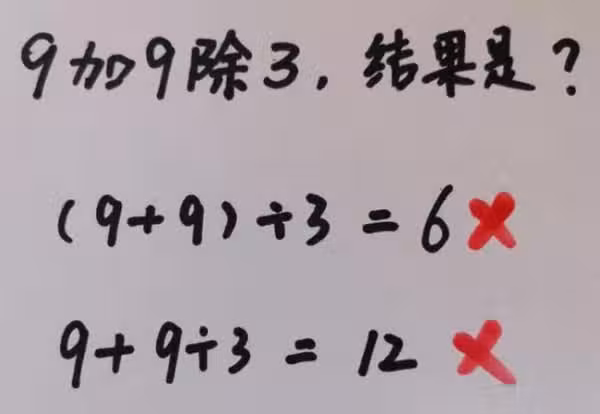 9加9除3，结果是？
(9+9)÷3=6×
9+9÷3=12×